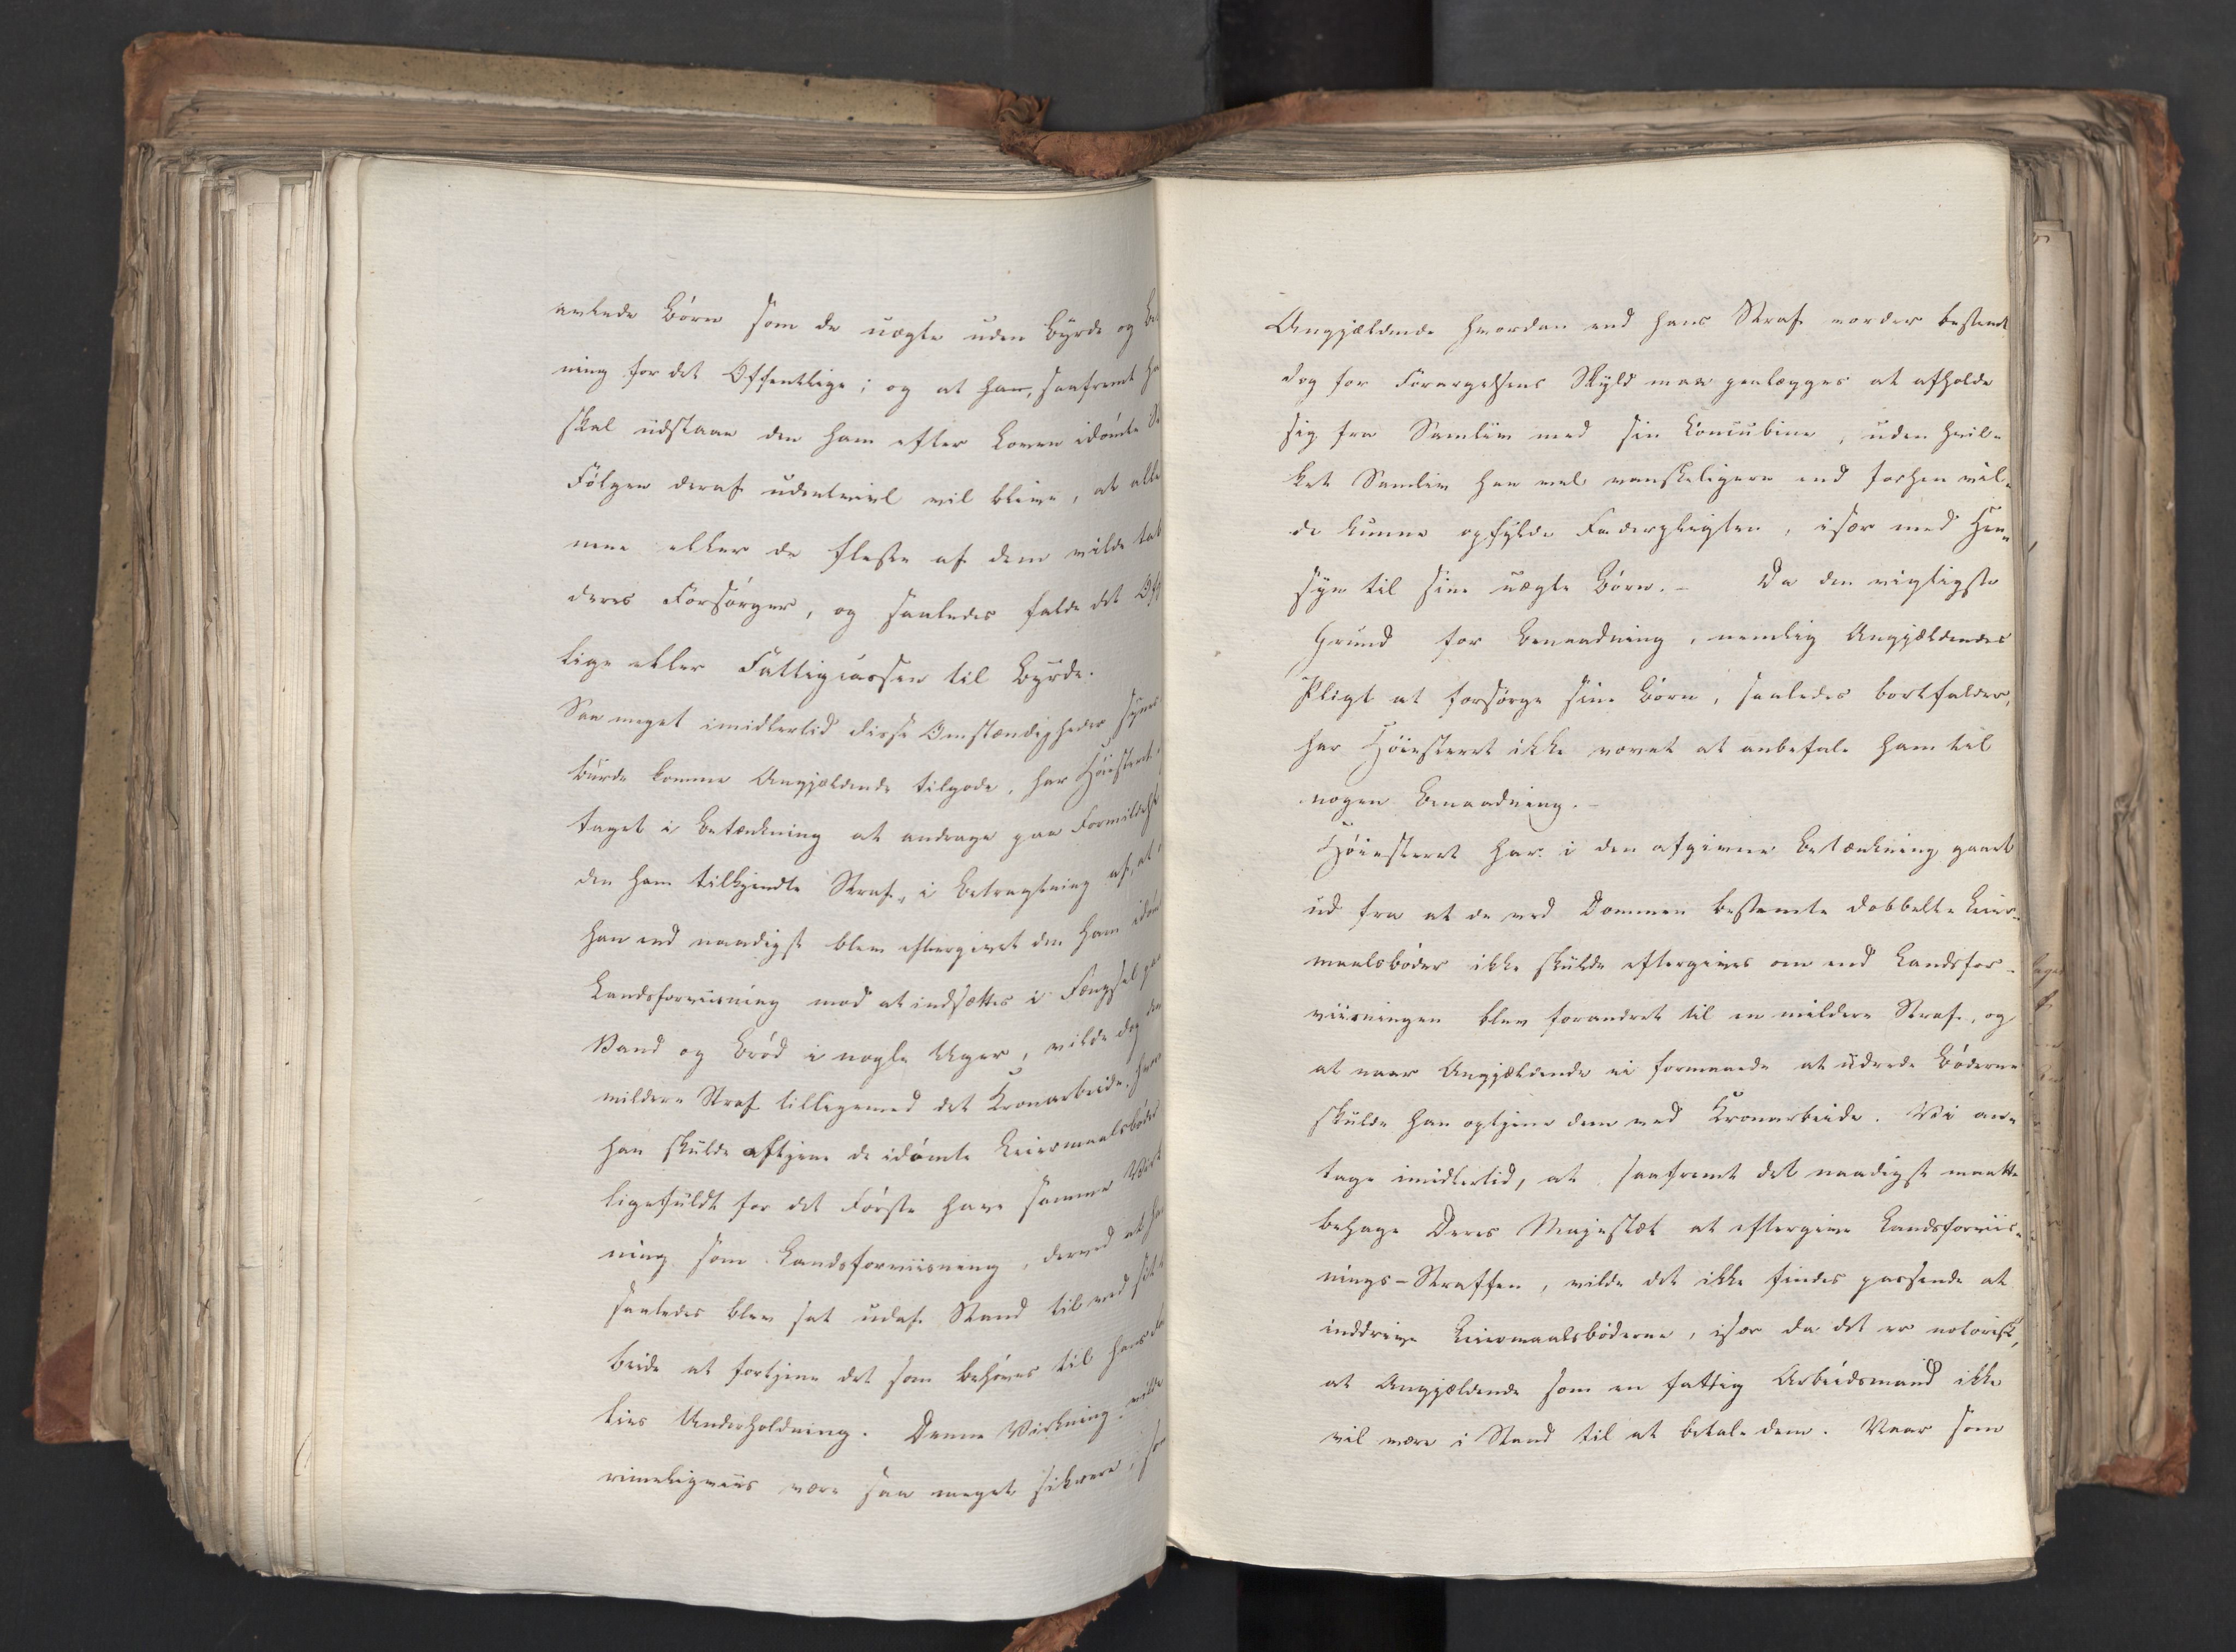 avlede Børn som de uægte uden Byrde og
ning for det Offentlige; og at han, saafremt
skal udstaae den ham efter Loven idømte
Følgen deraf udentvivl vil blive, at alle
mne eller de fleste af dem vilde tab
deres Forsørger, og saaledes falde det Off
lige eller Fattigcassen til Byrde.
Saa meget imidlertid disse Omstændigheder synes
burde komme Angjældende tilgode, har Høiesteret
taget i Betænkning at andrage paa Formildelse
den ham tilkjendte Straf, i Betragtning af, at
han end naadigst blev eftergivet den ham idøm
Landsforviisning mod at indsættes i Fængsel paa
Vand og Brød i nogle Uger, vilde dog den
mildere Straf tilligemed det Kronarbeide, hvor
han skulde aftjene de idømte Leiermaalsbøder
ligefuldt for det Første have samme Virk
ning som Landsforviisning, derved at han
saaledes blev sat udaf Stand til ved sit
beide at fortjene det som behøves til hans
lies Underholdning. Denne Virkning vilde
rimeligviis være saa meget sikkrere, som
Angjældende hvordan end hans Straf vorder bestemt
dog for Forargelsens Skyld maa paalægges at afholde
sig fra Samliv med sin Concubine, uden hvil-
ket Samliv han vel vanskeligere end forhen vil-
de kunne opfylde Faderpligten, især med Hen-
syn til sine uægte Børn. - Da den vigtigste
Grund for Benaadning, nemlig Angjældendes
Pligt at forsørge sine Børn, saaledes bortfalder,
har Høiesteret ikke vovet at anbefale ham til
nogen Benaadning. -
Høiesteret har i den afgivne Betænkning gaaet
ud fra at de ved Dommen bestemte dobbelte Leier-
maalsbøder ikke skulde eftergives om end Landsfor-
viisningen blev forandret til en mildere Straf, og
at naar Angjældende ei formaaede at udrede Bøderne
skulde han optjene dem ved Kronarbeide. Vi an-
tage imidlertid, at saafremt det naadigst maatte
behage Deres Majestæt at eftergive Landsforviis-
nings-Straffen, vilde det ikke findes passende at
inddrive Leiermaalsbøderne, især da det er notorisk,
at Angjældende som en fattig Arbeidsmand ikke
vil være i Stand til at betale dem. Naar som